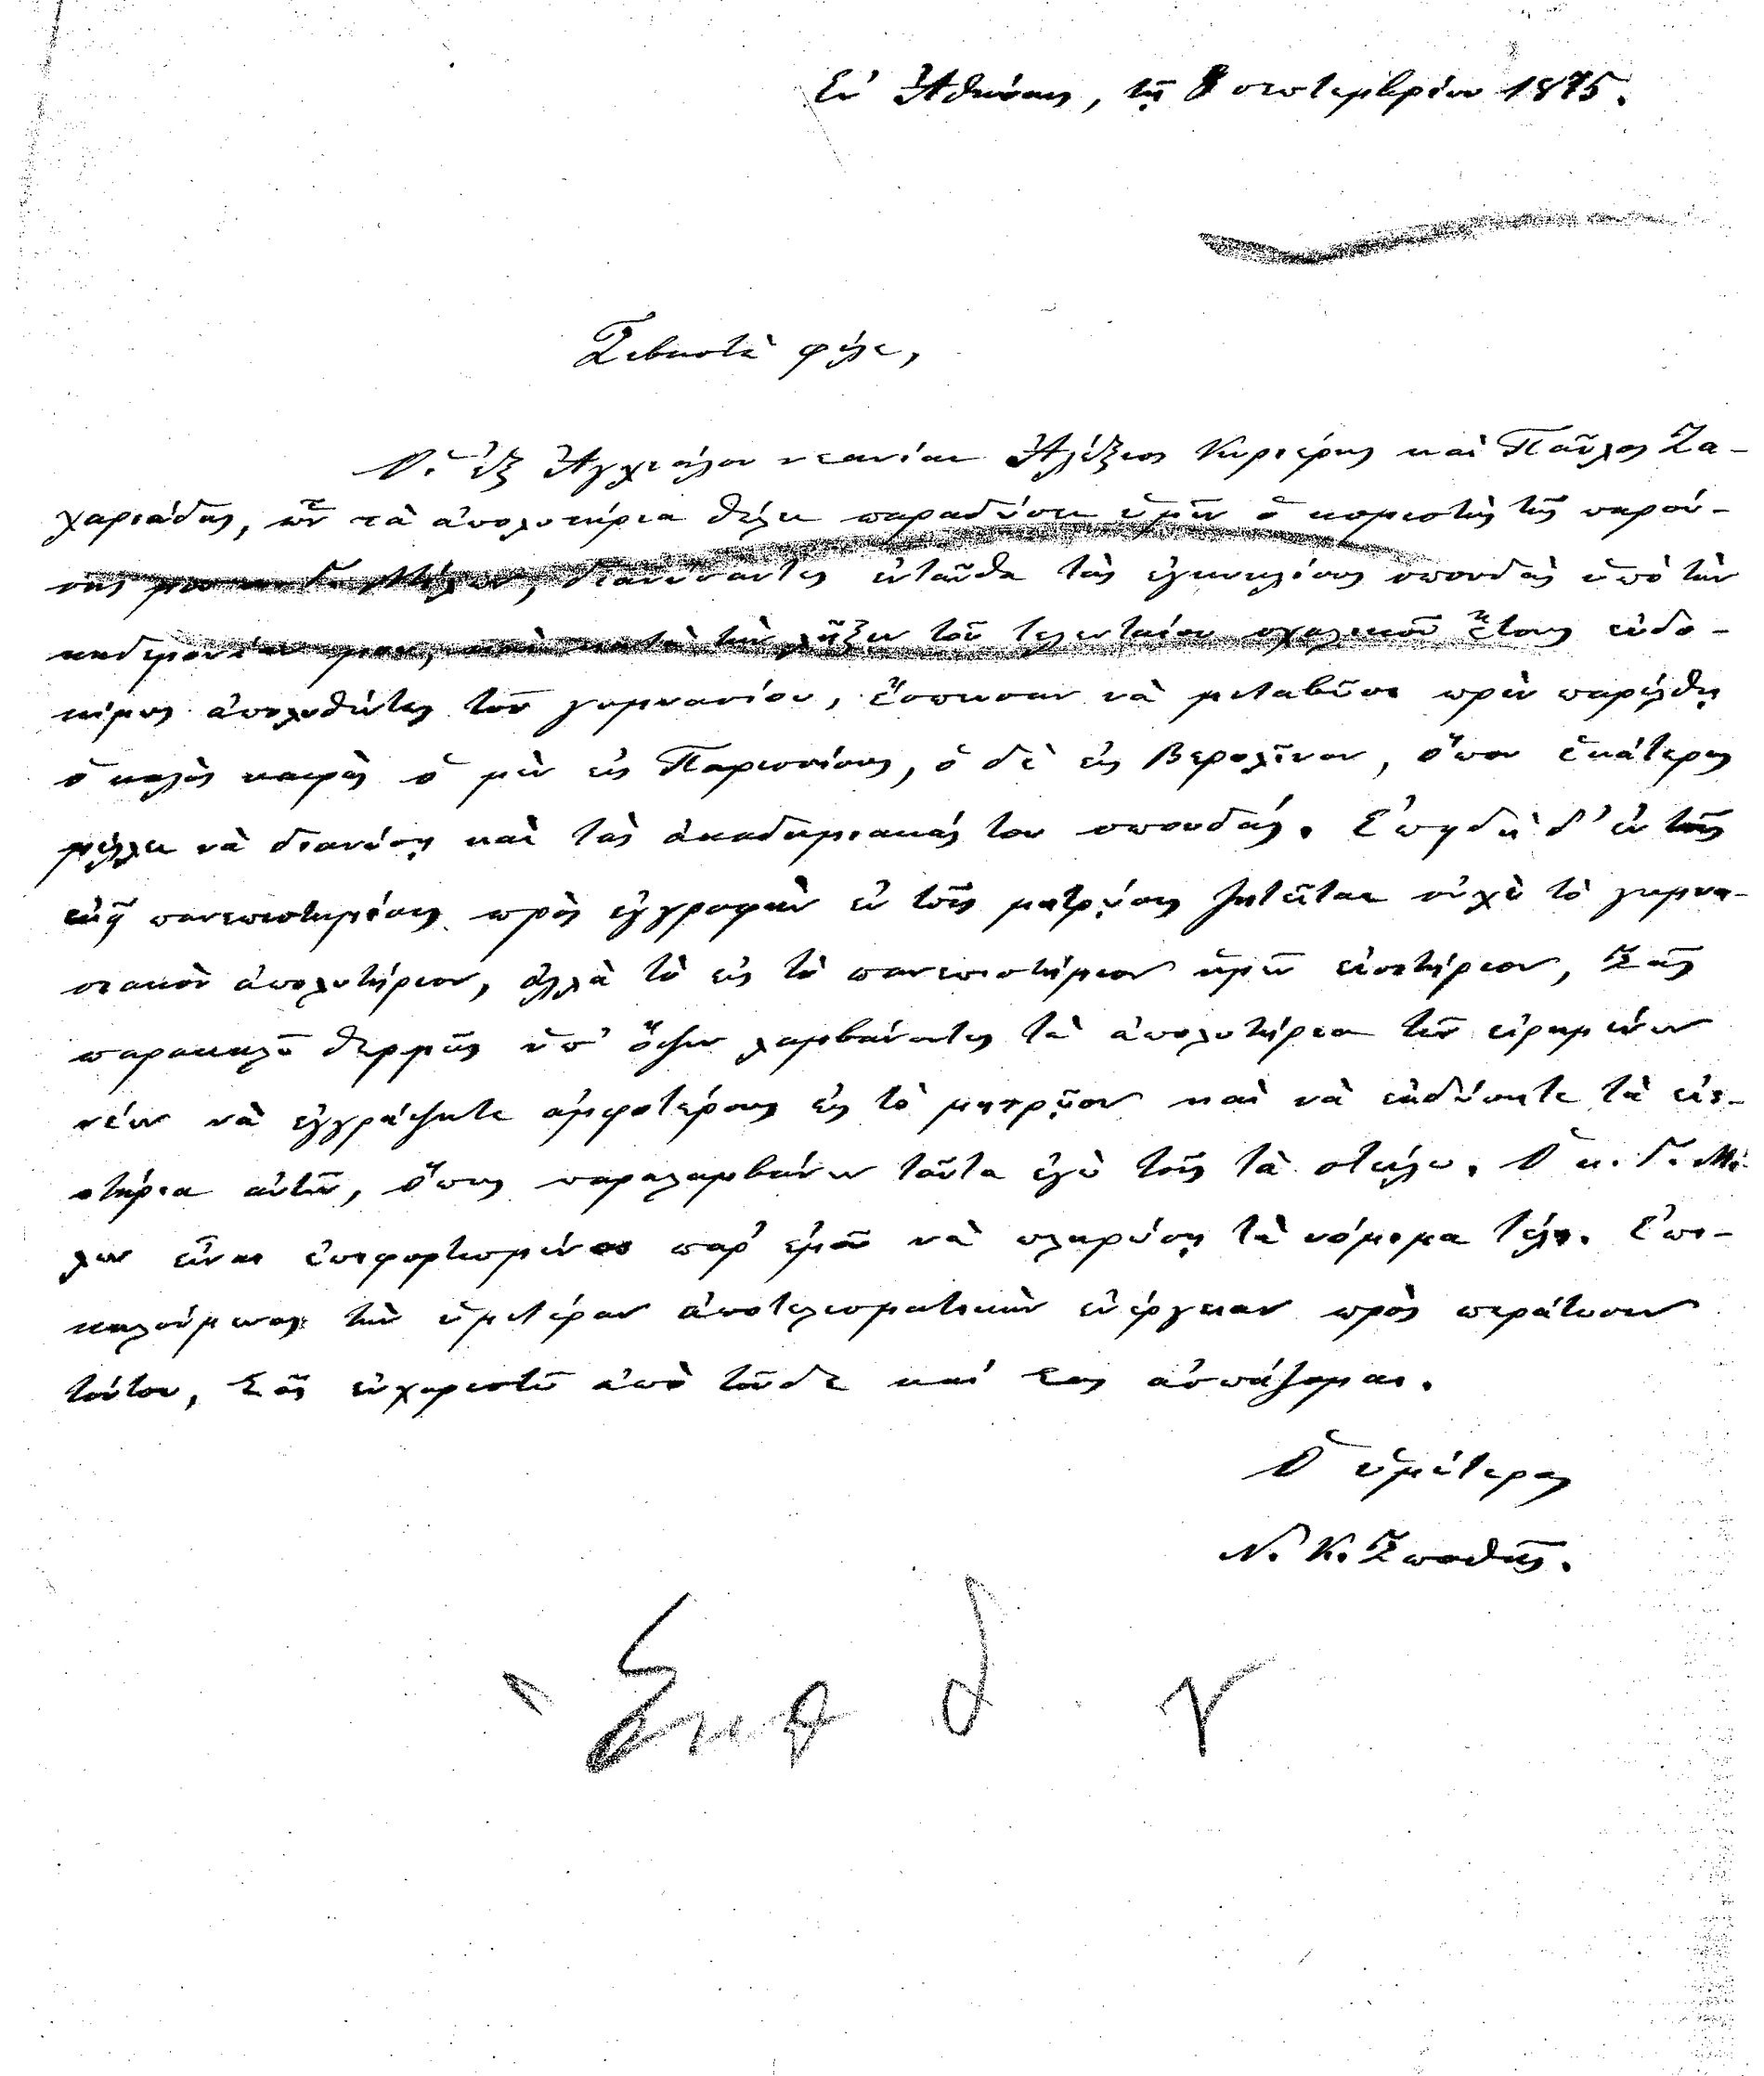 Ἐν Ἀθήναις, τῇ 8 σεπτεμβρίου 1875.
Σεβαστὲ φίλε,
Οἱ ἐξ Ἀγχιάλου νεανίαι Ἀλέξιος Κυριέρης καὶ Παῦλος Ζα-
χαριάδης, ὧν τὰ ἀπολυτήρια θέλει παραδώσει ὑμῖν ὁ κομιστὴς τῆς παρού-
σης μου κ. Γ. Μίλων, διανύσαντες ἐνταῦθα τὰς ἐγκυκλίους σπουδὰς ὑπὸ τὴν
κηδεμονίαν μου, καὶ κατὰ τὴν λῆξιν τοῦ τελευταίου σχολικοῦ ἔτους εὐδο-
κίμως ἀπολυθέντες τοῦ γυμνασίου, ἔσπευσαν νὰ μεταβῶσι πρὶν παρέλθῃ
ὁ καλὸς καιρὸς ὁ μὲν εἰς Παρισσίους, ὁ δὲ εἰς Βερολῖνον, ὅπου ἑκάτερος
μέλλει νὰ διανύσῃ καὶ τὰς ἀκαδημιακάς του σπουδάς. Ἐπειδὴ δ' ἐν τοῖς
ἐκεῖ πανεπιστημίοις πρὸς ἐγγραφὴν ἐν τοῖς μητρῴοις ζητεῖται οὐχὶ τὸ γυμνα-
σιακὸν ἀπολυτήριον, ἀλλὰ τὸ εἰς τὸ πανεπιστήμιον ἡμῶν εἰσιτήριον, Σᾶς
παρακαλῶ θερμῶς ὑπ' ὄψιν λαμβάνοντες τὰ ἀπολυτήρια τῶν εἰρημένων
νέων νὰ ἐγγράψητε ἀμφοτέρους εἰς τὸ μητρῷον καὶ νὰ ἐκδώσητε τὰ εἰσι-
τήρια αὐτῶν, ὅπως παραλαμβάνων ταῦτα ἐγὼ τοῖς τὰ στείλω. Ὁ κ. Γ. Μί-
λων εἶναι ἐπιφορτισμένος παρ' ἐμοῦ νὰ πληρώσῃ τὰ νόμιμα τέλη. Ἐπι-
καλούμενος τὴν ὑμετέραν ἀποτελεσματικὴν ἐνέργειαν πρὸς περάτωσιν
τούτου, Σᾶς εὐχαριστῶ ἀπὸ τοῦδε καὶ Σας ἀσπάζομαι.
Ὁ ὑμέτερος
Ν. Κ. Σπαθῆς.